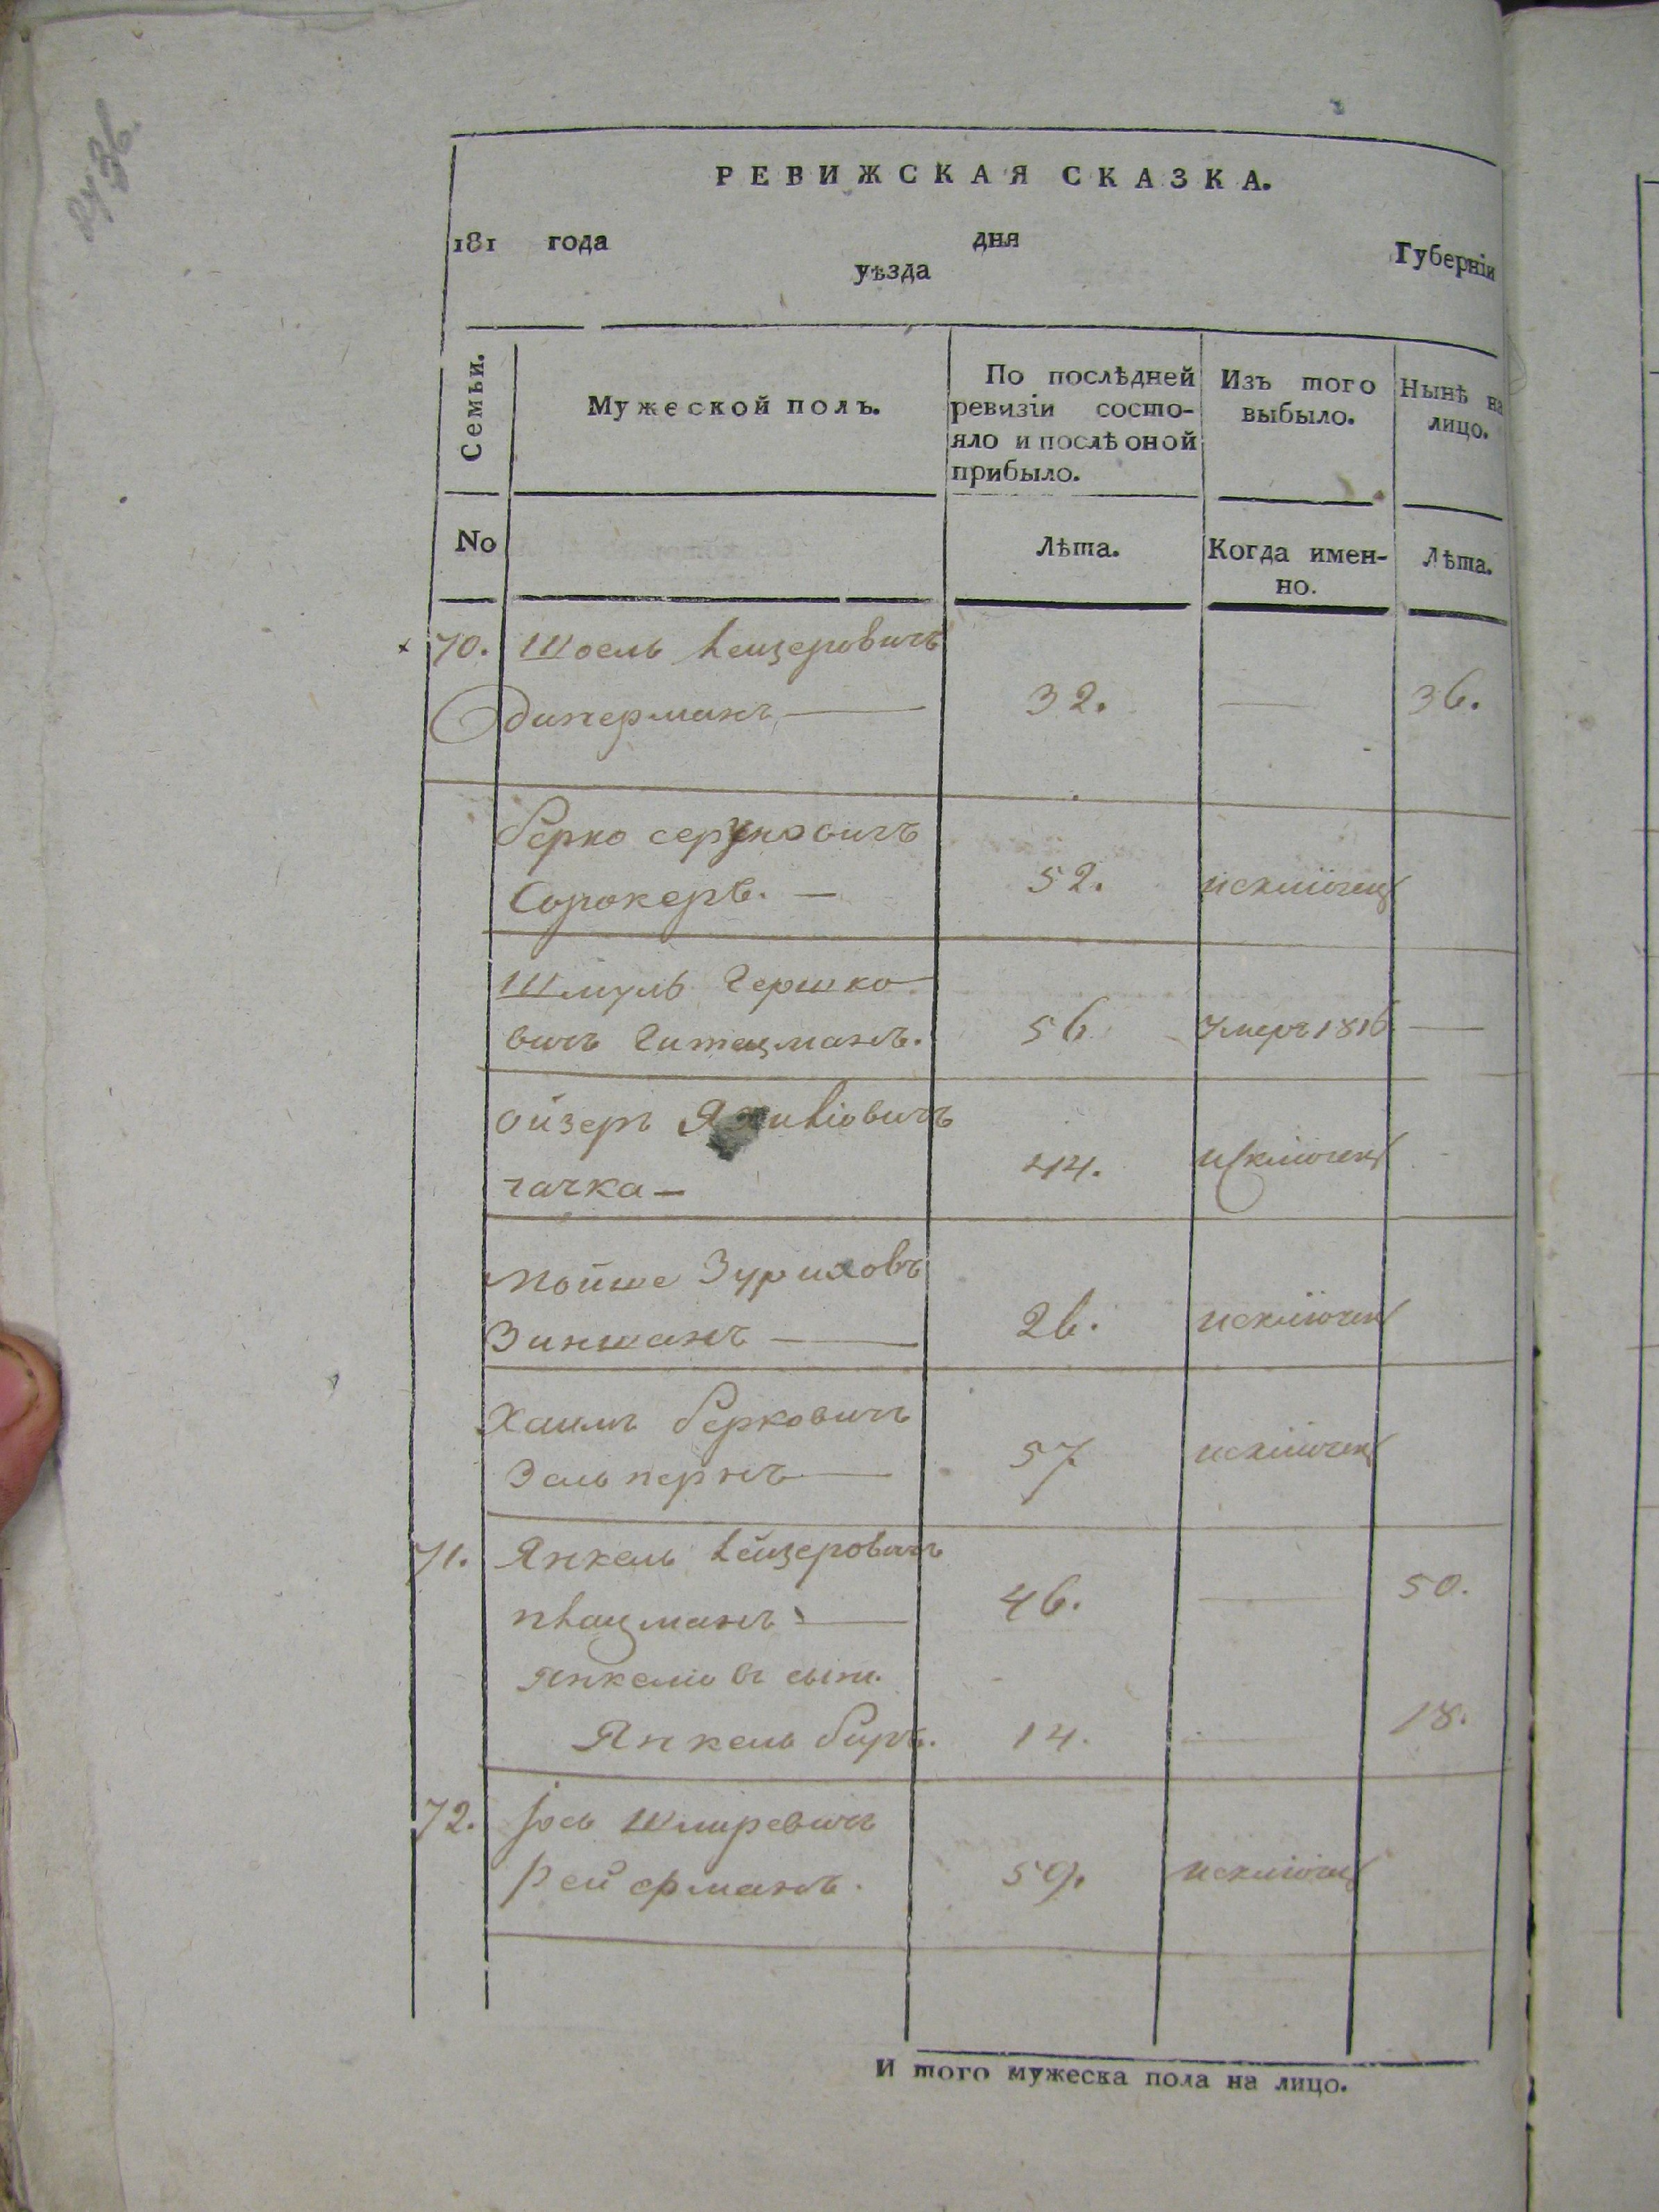 36.
РЕВИЖСКАЯ СКАЗКА.
181 года дня Губерніи
уѣзда
Семьи. Мужеской полъ. По послѣдней ревизіи состо-яло и послѣ оной прибыло. Изъ того выбыло. Нынѣ на лицо.
No Лѣта. Когда имен-но. Лѣта.
70. Шоель Лейзеровичъ
Диперманъ — 32. — 36.
Берко
Сорокеръ. — 52. исключенъ
Шмуль Гершко
вичъ Гитецманъ. 56 умеръ 1816 —
Ойзеръ
гачка — 44. исключенъ
Мойше Зуриховъ
Зиншанъ — 26. исключенъ
Хаимъ Берковичъ
Зальпернъ — 57 исключенъ
71. Янкель Лейзеровичъ
плацманъ — 46. — 50.
Янкелиовъ сынъ.
Янкель Беръ. 14. — 18.
72. Іось Шмиревичъ
Рейферманъ. 59. исключенъ
И того мужеска пола на лицо.